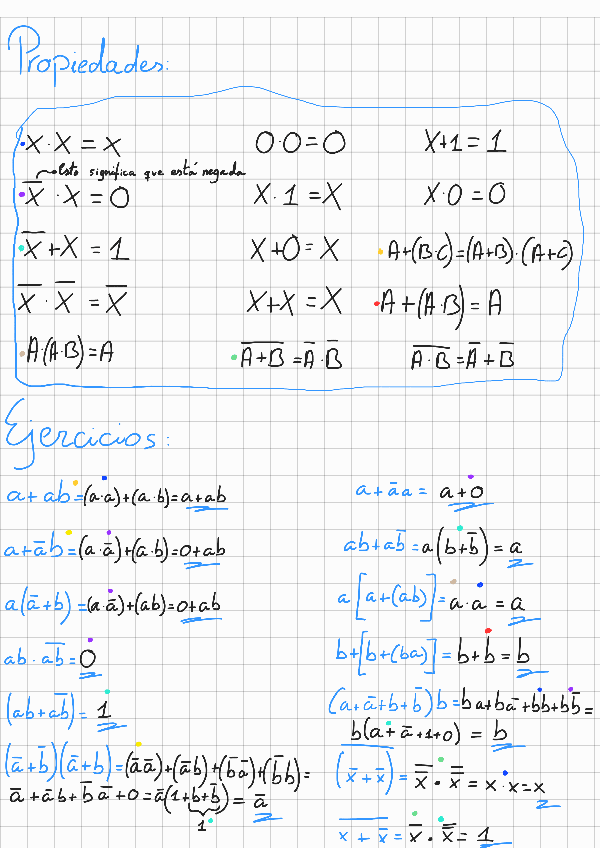 Propiedades:
X · X = X
0·0=0
X+1=1
Esto significa que está negada
X̅ · X = 0
X · 1 = X
X·0 = 0
X̅+X = 1
X+0= X
A+(B·C)=(A+B)·(A+C)
X̅ · X̅ = X̅
X+X = X
A+(A·B)= A
A·(A·B)=A
A̅+̅B̅ = A̅·B̅
A̅·̅B̅=A̅+B̅
Ejercicios:
a+ab=(a·a)+(a·b)=a+ab
a+a̅b=(a·a̅)+(a·b)=0+ab
a(a̅+b)=(a·a̅)+(ab)=0+ab
ab·a̅b̅=0
(ab+a̅b̅)= 1
(a̅+b̅)(a̅+b)=(a̅a̅)+(a̅b)+(b̅a̅)+(b̅b)=
a̅+a̅b+b̅a̅+0=a̅(1+b+b̅)= a̅
1
a+a̅a= a+0
ab+ab̅=a(b+b̅)=a
a[a+(ab)]=a·a=a
b+[b+(ba)]=b+b=b
(a+a̅+b+b̅)b=ba+ba̅+bb+bb̅=
b(a+a̅+1+0)= b
(x̅+̅x̅)= x̿ · x̿ = x·x=x
x̅ +̅ x̿= x̅ · x̿ = 1